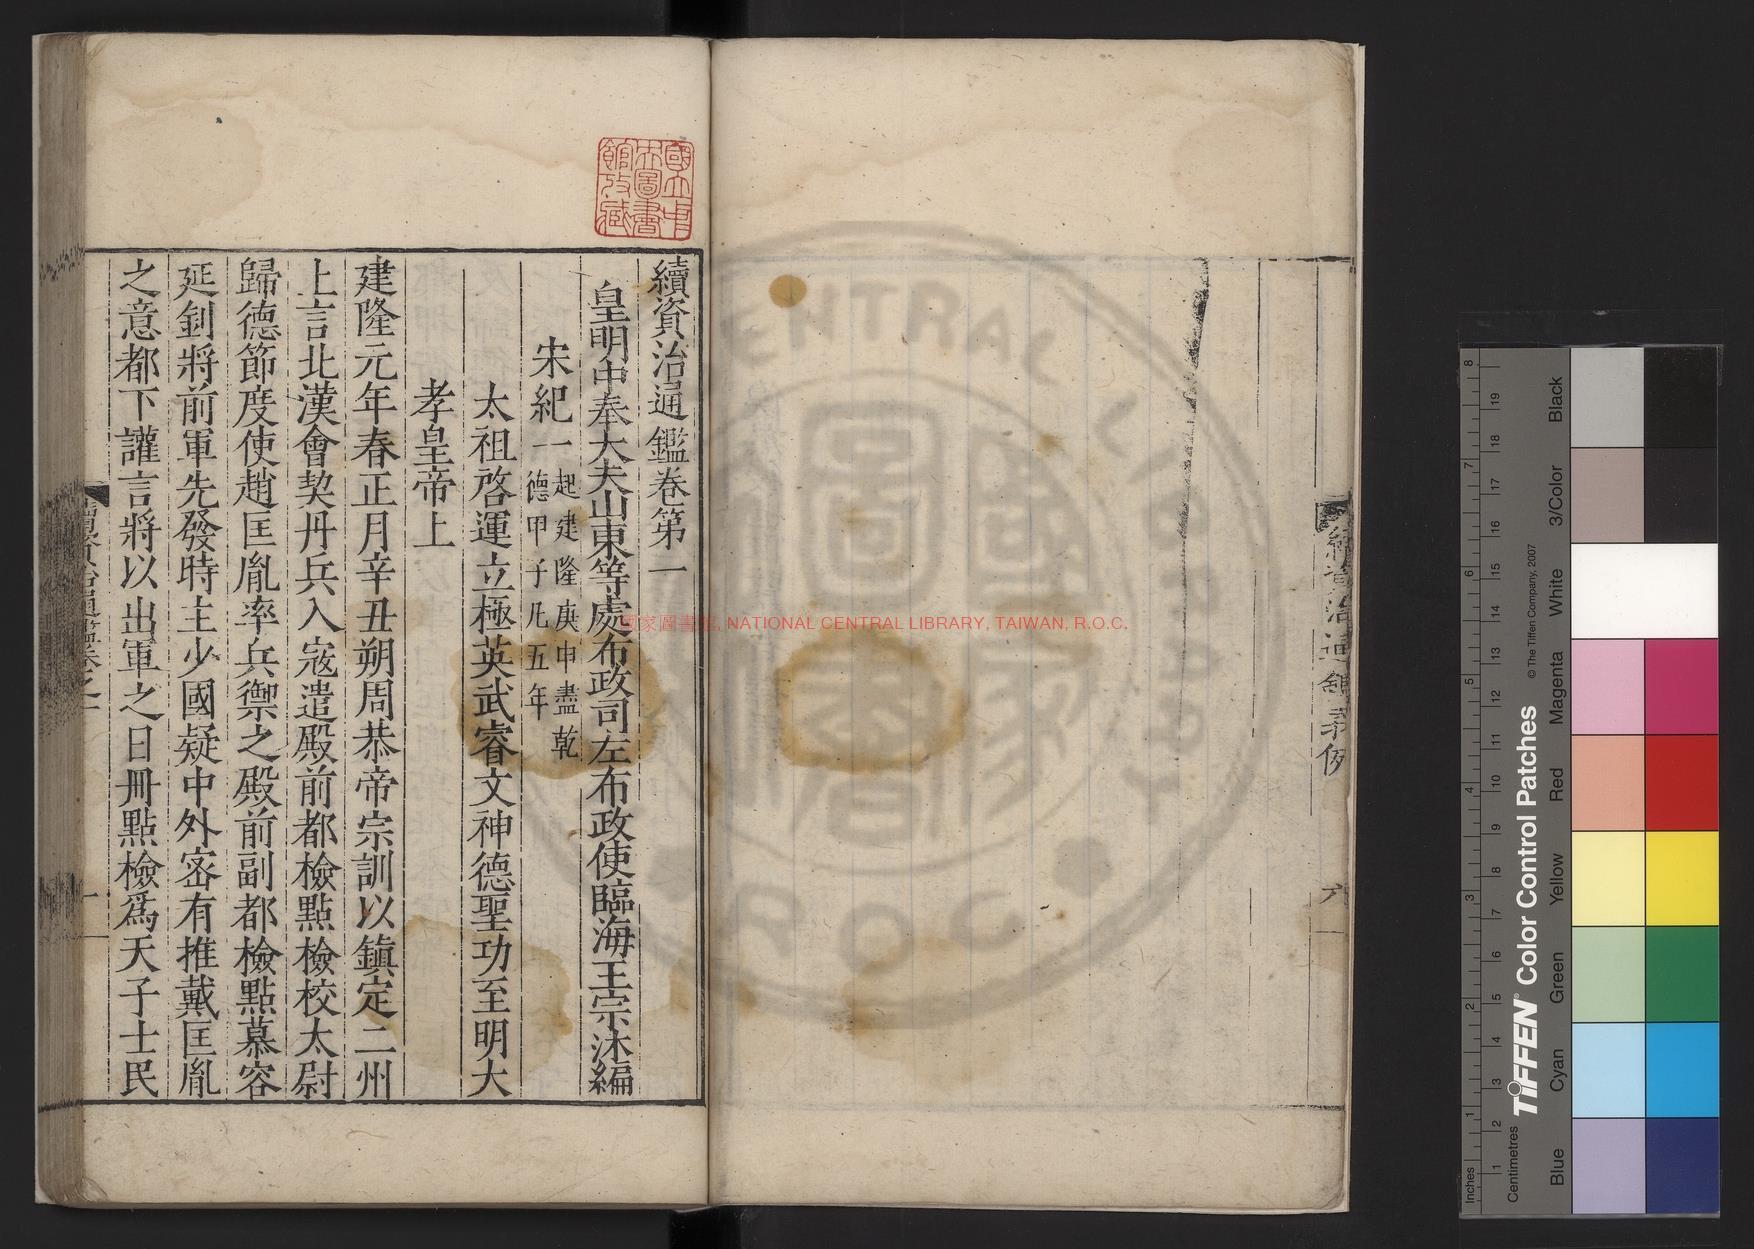 續資治通鑑卷第一
皇明中奉大夫山東等處布政司左布政使臨海王宗沐編
宋紀一
起建隆庚申盡乾
德甲子凡五年
太祖啓運立極英武睿文神德聖功至明大
孝皇帝上
建隆元年春正月辛丑朔周恭帝宗訓以鎮定二州
上言北漢會契丹兵入寇遣殿前都檢點檢校太尉
歸德節度使趙匡胤率兵禦之殿前副都檢點慕容
延釗將前軍先發時主少國疑中外密有推戴匡胤
之意都下讙言將以出軍之日冊點檢爲天子士民
國立中
央圖書
館收藏
續資治通鑑義例
六
一
國家圖書館, NATIONAL CENTRAL LIBRARY, TAIWAN, R.O.C.
CENTRAL
R.O.C.
TIFFEN Color Control Patches
© The Tiffen Company, 2007
Centimetres
Inches
Blue
Cyan
Green
Yellow
Red
Magenta
White
3/Color
Black